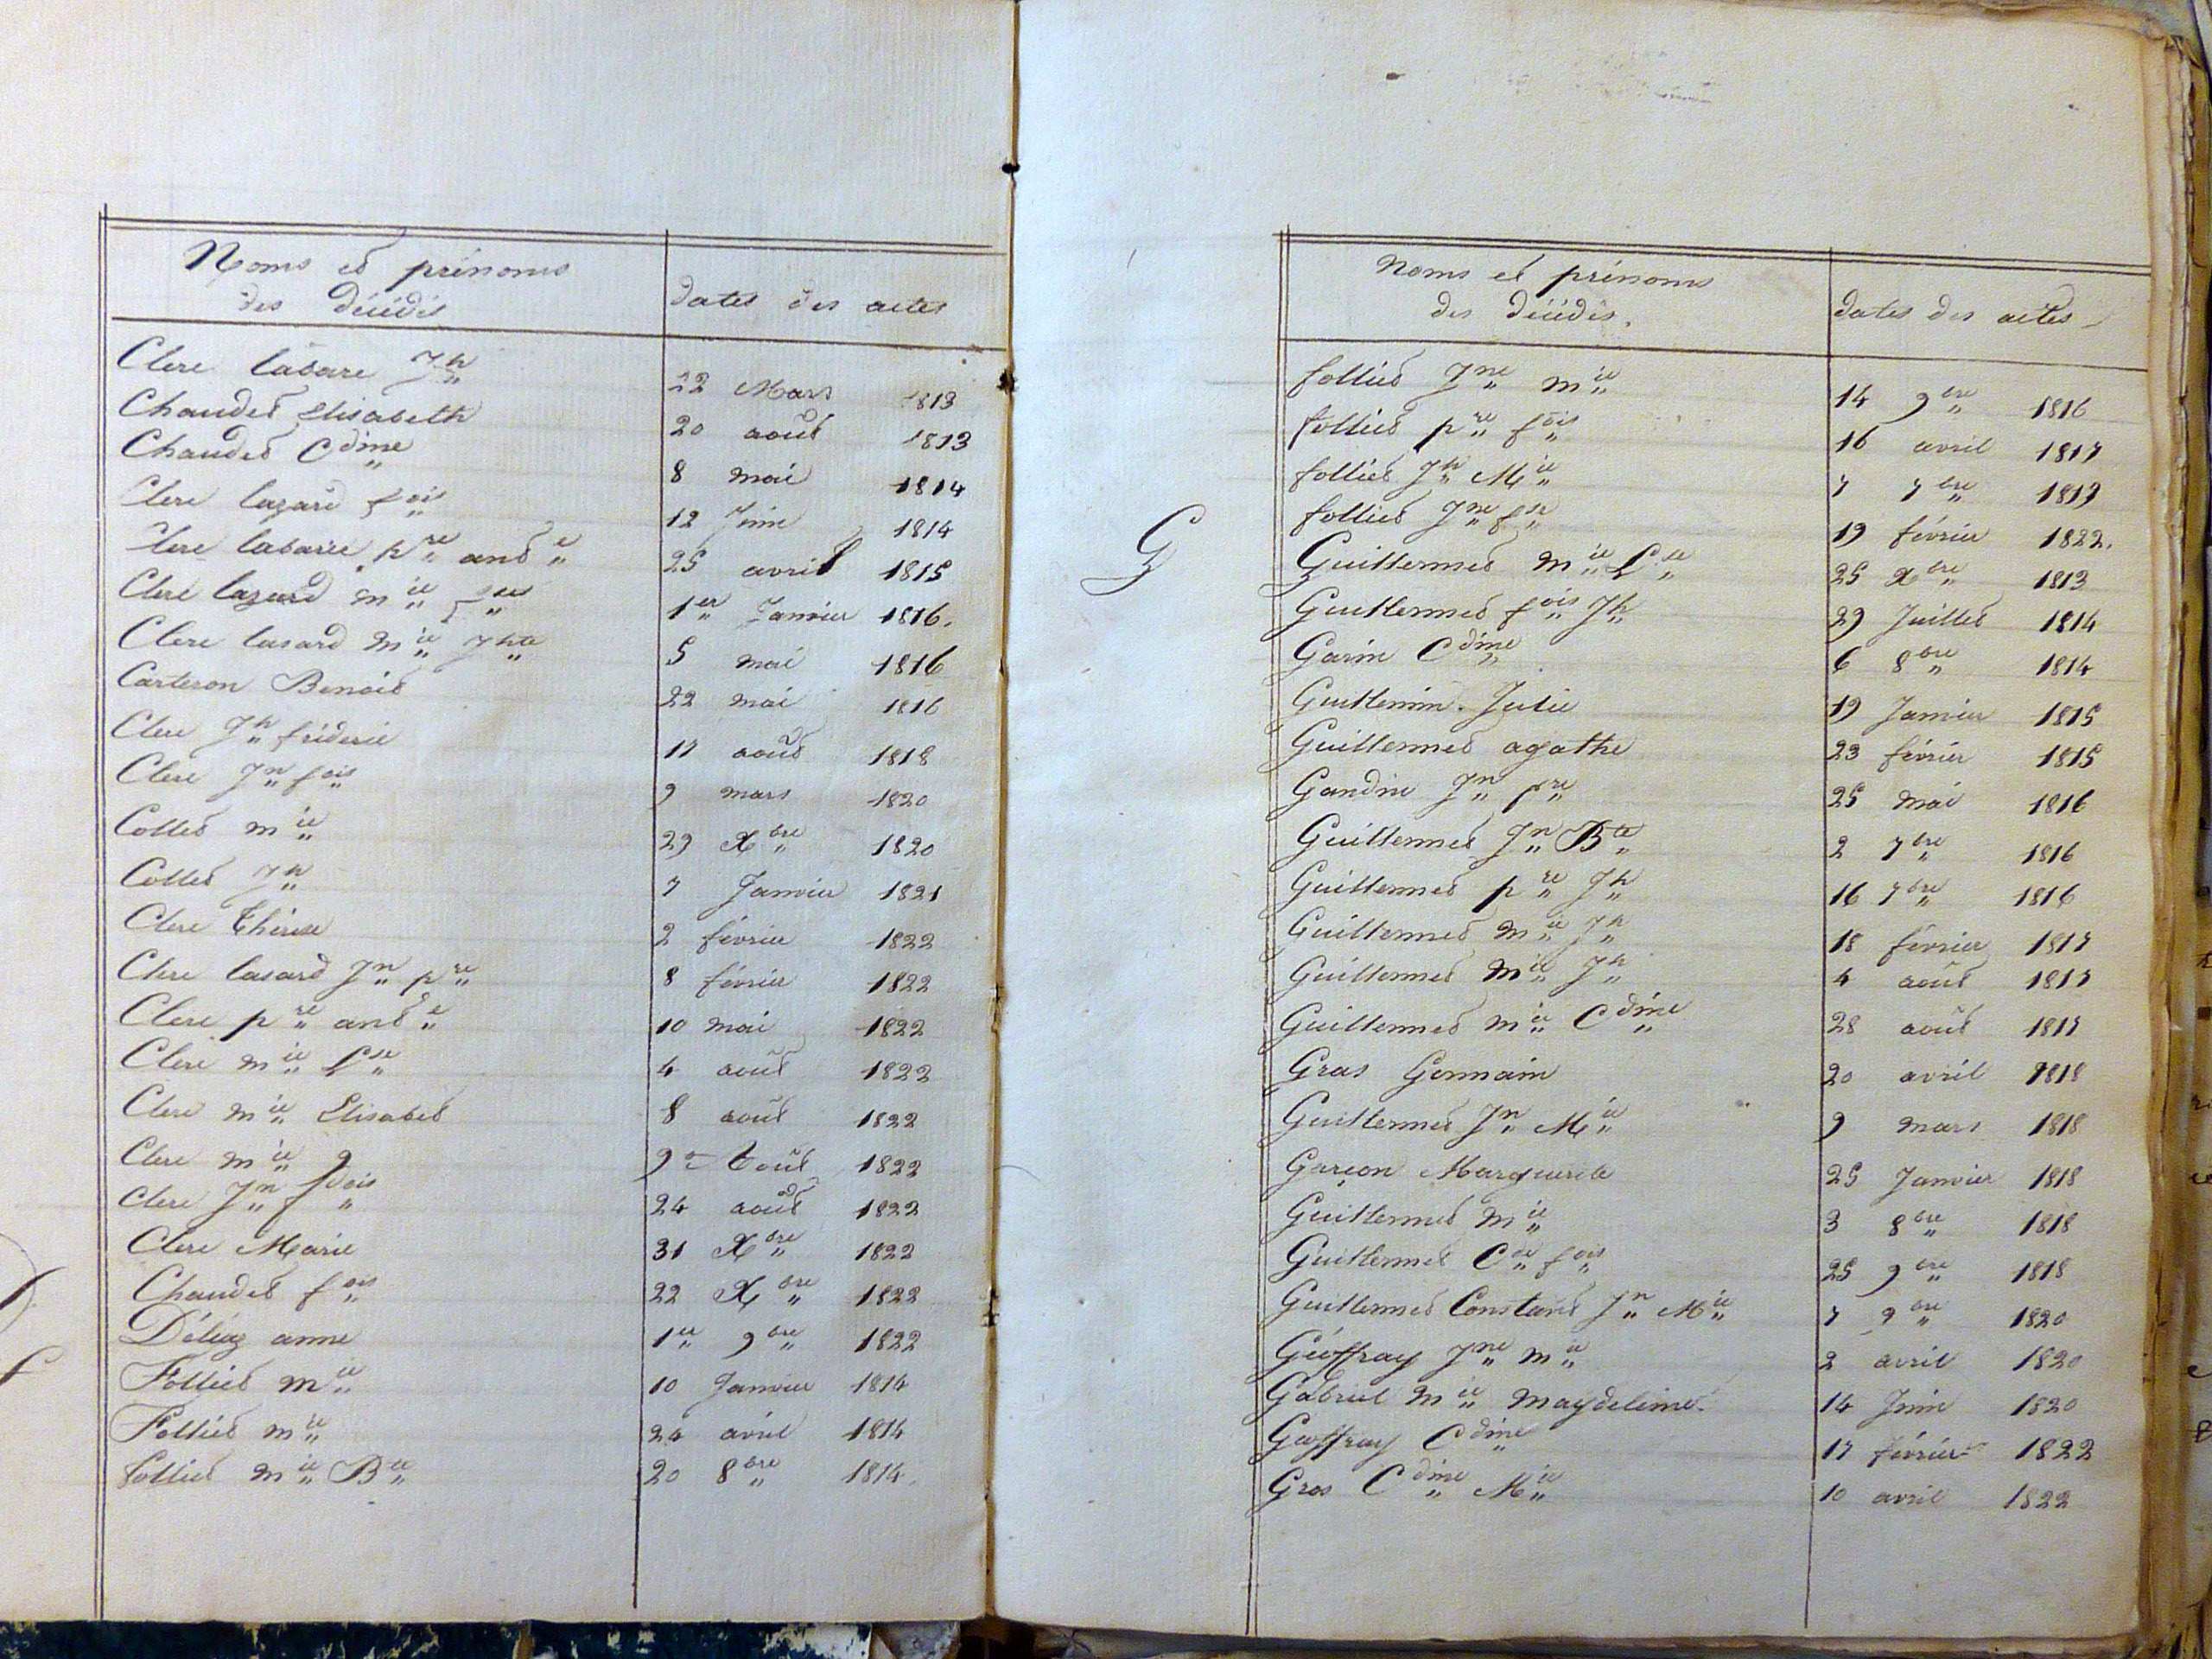 Noms et prénoms
des décédés
dates des actes
Clerc lasare Jh 22 Mars 1813
Chaudet Elisabeth 20 août 1813
Chaudet Cdine 8 mai 1814
Clerc lazard fois 12 Juin 1814
Clerc lasare pre and e 25 avril 1815
Clerc lazard mie 1er Janvier 1816.
Clerc lasard mie Jhte 5 mai 1816
Carteron Benoit 22 mai 1816
Clerc Jh fréderic 17 août 1818
Clerc Jn fois 9 mars 1820
Collet mie 29 Xbre 1820
Collet Jh 7 Janvier 1821
Clerc Thérèse 2 février 1822
Clerc lasard Jn pre 8 février 1822
Clerc pre and e 10 mai 1822
Clerc mie Lse 4 août 1822
Clerc mie Elisabet 8 août 1822
Clerc mie 9 août 1822
Clerc Jn fois 24 août 1822
Clerc Marie 31 Xbre 1822
Chaudet fois 22 Xbre 1822
Déléaz anne 1er 9bre 1822
f
Folliet mie 10 Janvier 1814
Folliet mie 24 avril 1814
folliet mie Bte 20 8bre 1814
Noms et prénoms
des décédés.
dates des actes
folliet Jne mie 14 9bre 1816
folliet pre fois 16 avril 1817
folliet Jh Mie 7 7bre 1819
folliet Jne 19 février 1822.
G
Guillermet mie Lse 25 Xbre 1813
Guillermet fois Jh 29 Juillet 1814
Garin Cdine 6 8bre 1814
Guillemin Julie 19 Janvier 1815
Guillermet agathe 23 février 1815
Gandin Jn pre 25 mai 1816
Guillermet Jn Bte 2 7bre 1816
Guillermet pre Jh 16 7bre 1816
Guillermet mie Jh 18 février 1817
Guillermet mie Jh 4 août 1817
Guillermet mie Cdine 28 août 1817
Gras Germain 20 avril 1818
Guillermet Jn Mie 9 mars 1818
Garçon Marguerite 25 Janvier 1818
Guillermet mie 3 8bre 1818
Guillermet Cde fois 25 9bre 1818
Guillermet Constant Jn Mie 7 9bre 1820
Géoffray Jne mie 2 avril 1820
Gabriel mie magdeleine 14 Juin 1820
Geoffray Cdine 17 février 1822
Gros Cdine Mie 10 avril 1822